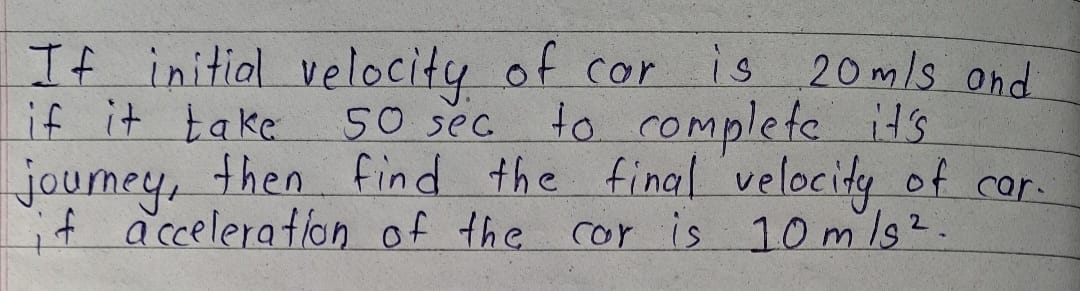 If initial velocity of car is 20 m/s and
if it take 50 sec to complete it's
journey, then find the final velocity of car.
if acceleration of the car is 10 m/s².